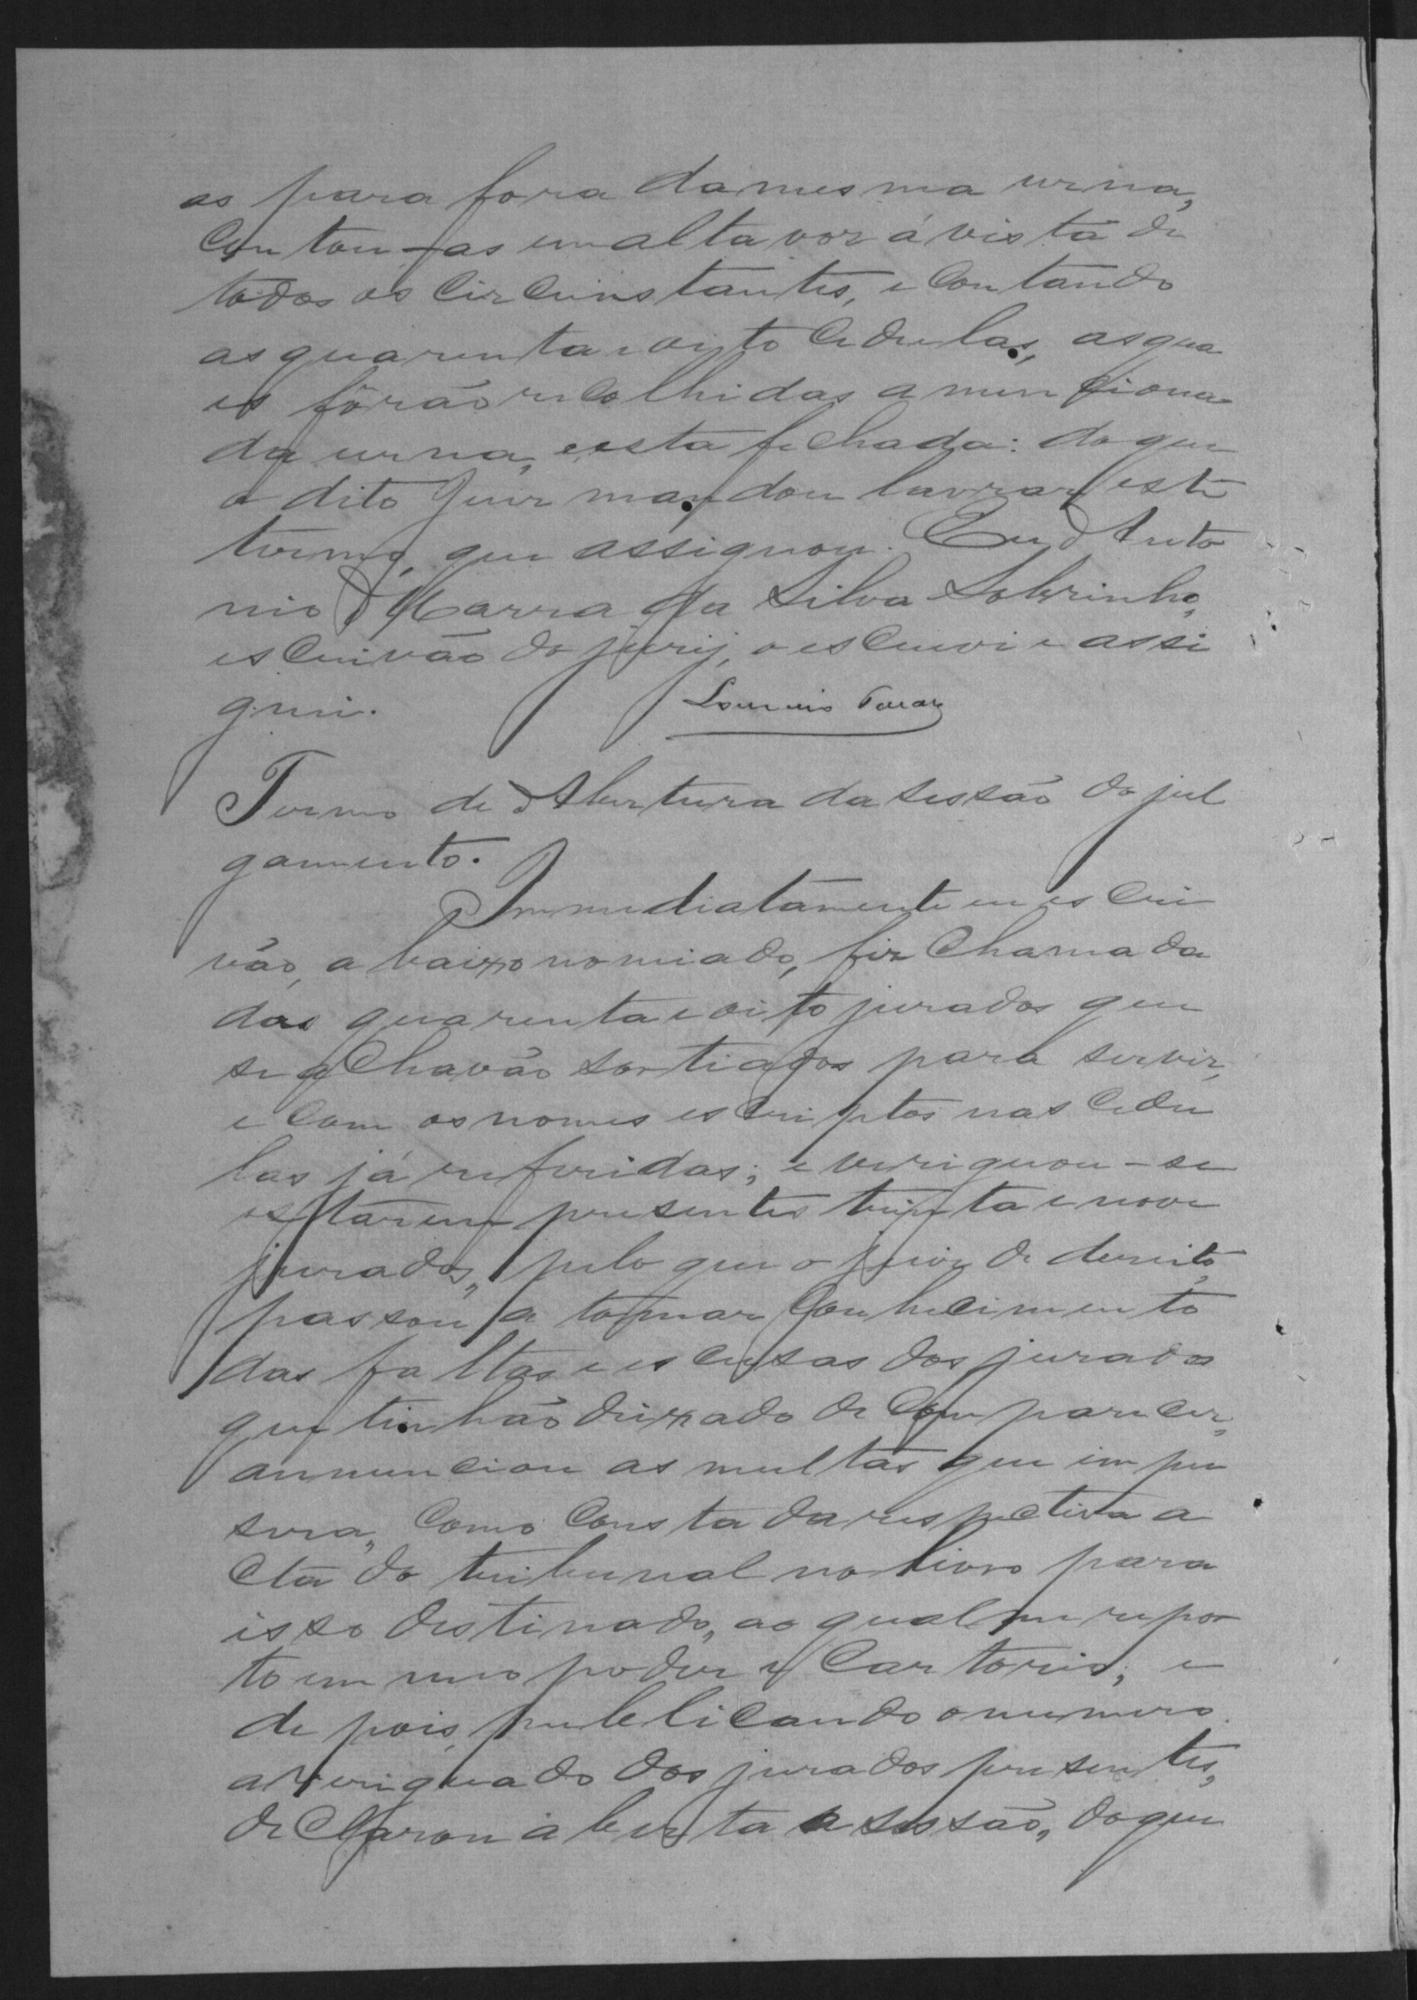 as para fora da mesma urna,
contou-as em alta voz á vista de
todos os circumstantes, e contando
as quarenta e oito cedulas, as qua
es fôrão recolhidas a menciona-
da urna, e esta fechada: do que
o dito Juiz mandou lavrar este
termo, que assignou. Eu Anto
nio Marra da Silva Sobrinho,
escrivão do jury, o escrevi e assi
gnei.
Termo de Abertura da sessão do jul
gamento.
Immediatamente eu escri
vão, abaixo nomiado, fiz chamada
dos quarenta e oito jurados que
se achavão sortiados para servir,
e com os nomes escriptos nas cedu
las já referidas; e veriguou-se
estarem presentes trinta e nove
jurados, pelo que o juiz de direito
passou a tomar conhecimento
das faltas e escusas dos jurados
que tinhão deixado de comparecer,
annunciou as multas que impu
sera, como consta da respectiva a
cta do tribunal no livro para
isso destinado, ao qual me repor
to em meo poder e cartorio; e
depois, publicando o numero
averiguado dos jurados presentes,
declarou aberta a sessão, do que